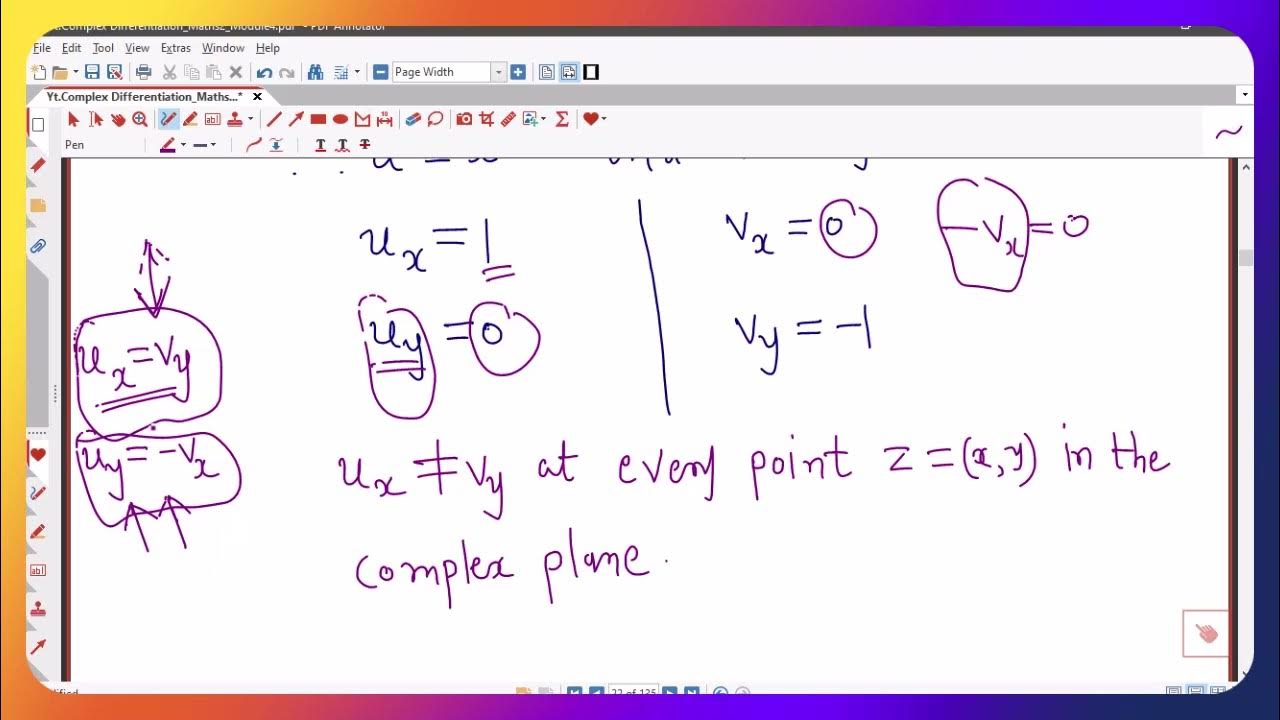 Yt.Complex Differentiation_Maths2_Module4.pdf* - PDF Annotator
File Edit Tool View Extras Window Help
Page Width
Yt.Complex Differentiation_Maths...*
Pen
u_x = 1
v_x = 0
-v_x = 0
u_y = 0
v_y = -1
u_x = v_y
u_y = -v_x
u_x ≠ v_y at every point z = (x, y) in the
complex plane.
22 of 135